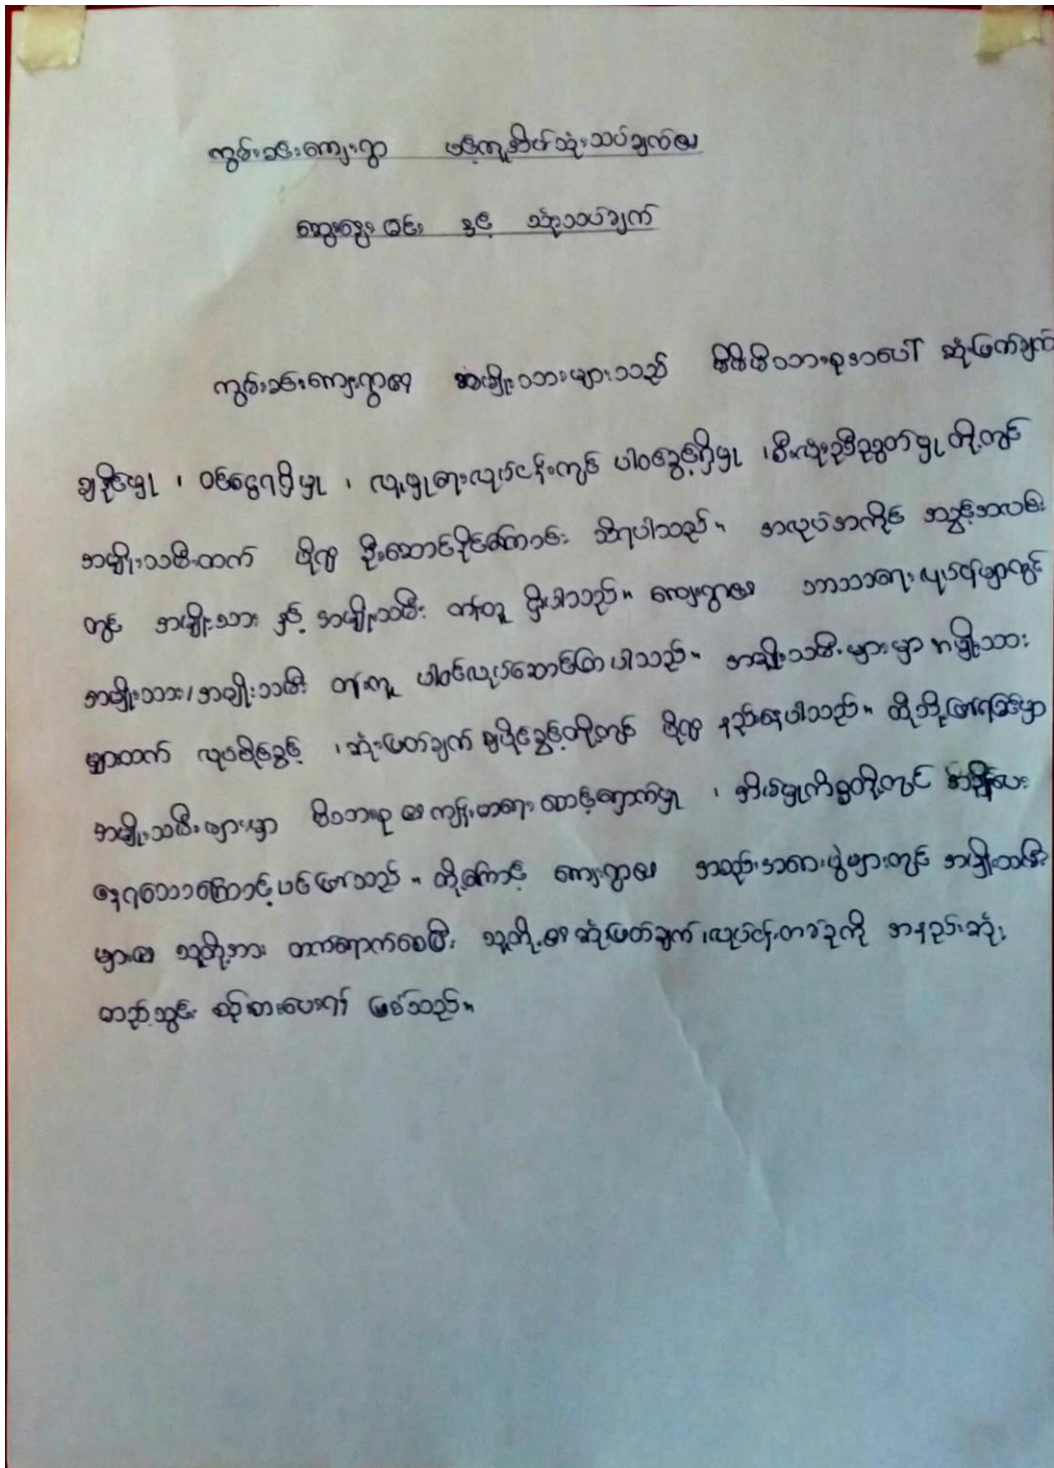 ကွမ်းခင်းကျေးရွာ
ဆွေးနွေးခြင်း နှင့် သုံးသပ်ချက်
ကွမ်းခင်းကျေးရွာ၏ အမျိုးသားများသည် မိမိမိသားစုအပေါ် ဆုံးဖြတ်ချက်
ချနိုင်မှု ၊ ဝင်ငွေရရှိမှု ၊ လူမှုရေးလုပ်ငန်းတွင် ပါဝင်ခွင့်ရှိမှု ၊ စီးလုံးညီညွတ်မှု တို့တွင်
အမျိုးသမီးထက် ပို၍ ဦးဆောင်နိုင်ကြောင်း သိရပါသည်။ အလုပ်အကိုင် အခွင့်အလမ်း
တွင် အမျိုးသား နှင့် အမျိုးသမီး တန်းတူ ရှိပါသည်။ ကျေးရွာ၏ ဘာသာရေး လုပ်ငန်းများတွင်
အမျိုးသား/အမျိုးသမီး တန်းတူ ပါဝင်လုပ်ဆောင်ကြပါသည်။ အမျိုးသမီးများမှာ အမျိုးသား
များထက် လုပ်ပိုင်ခွင့် ၊ ဆုံးဖြတ်ချက် ချပိုင်ခွင့်တို့တွင် ပို၍ နည်းနေပါသည်။ ထိုသို့ဖြစ်ရခြင်းမှာ
အမျိုးသမီးများမှာ မိသားစု၏ ကျန်းမာရေး စောင့်ရှောက်မှု ၊ အိမ်မှုကိစ္စတို့တွင် အချိန်ပေး
နေရသောကြောင့်ပင်ဖြစ်သည်။ ထို့ကြောင့် ကျေးရွာ၏ အစည်းအဝေးပွဲများတွင် အမျိုးသမီး
များ၏ သူတို့အား တက်ရောက်စေပြီး သူတို့၏ ဆုံးဖြတ်ချက် ၊ လုပ်ငန်းတစ်ခုကို အနည်းဆုံး
ထည့်သွင်း စဉ်းစားပေးရန် ဖြစ်သည်။